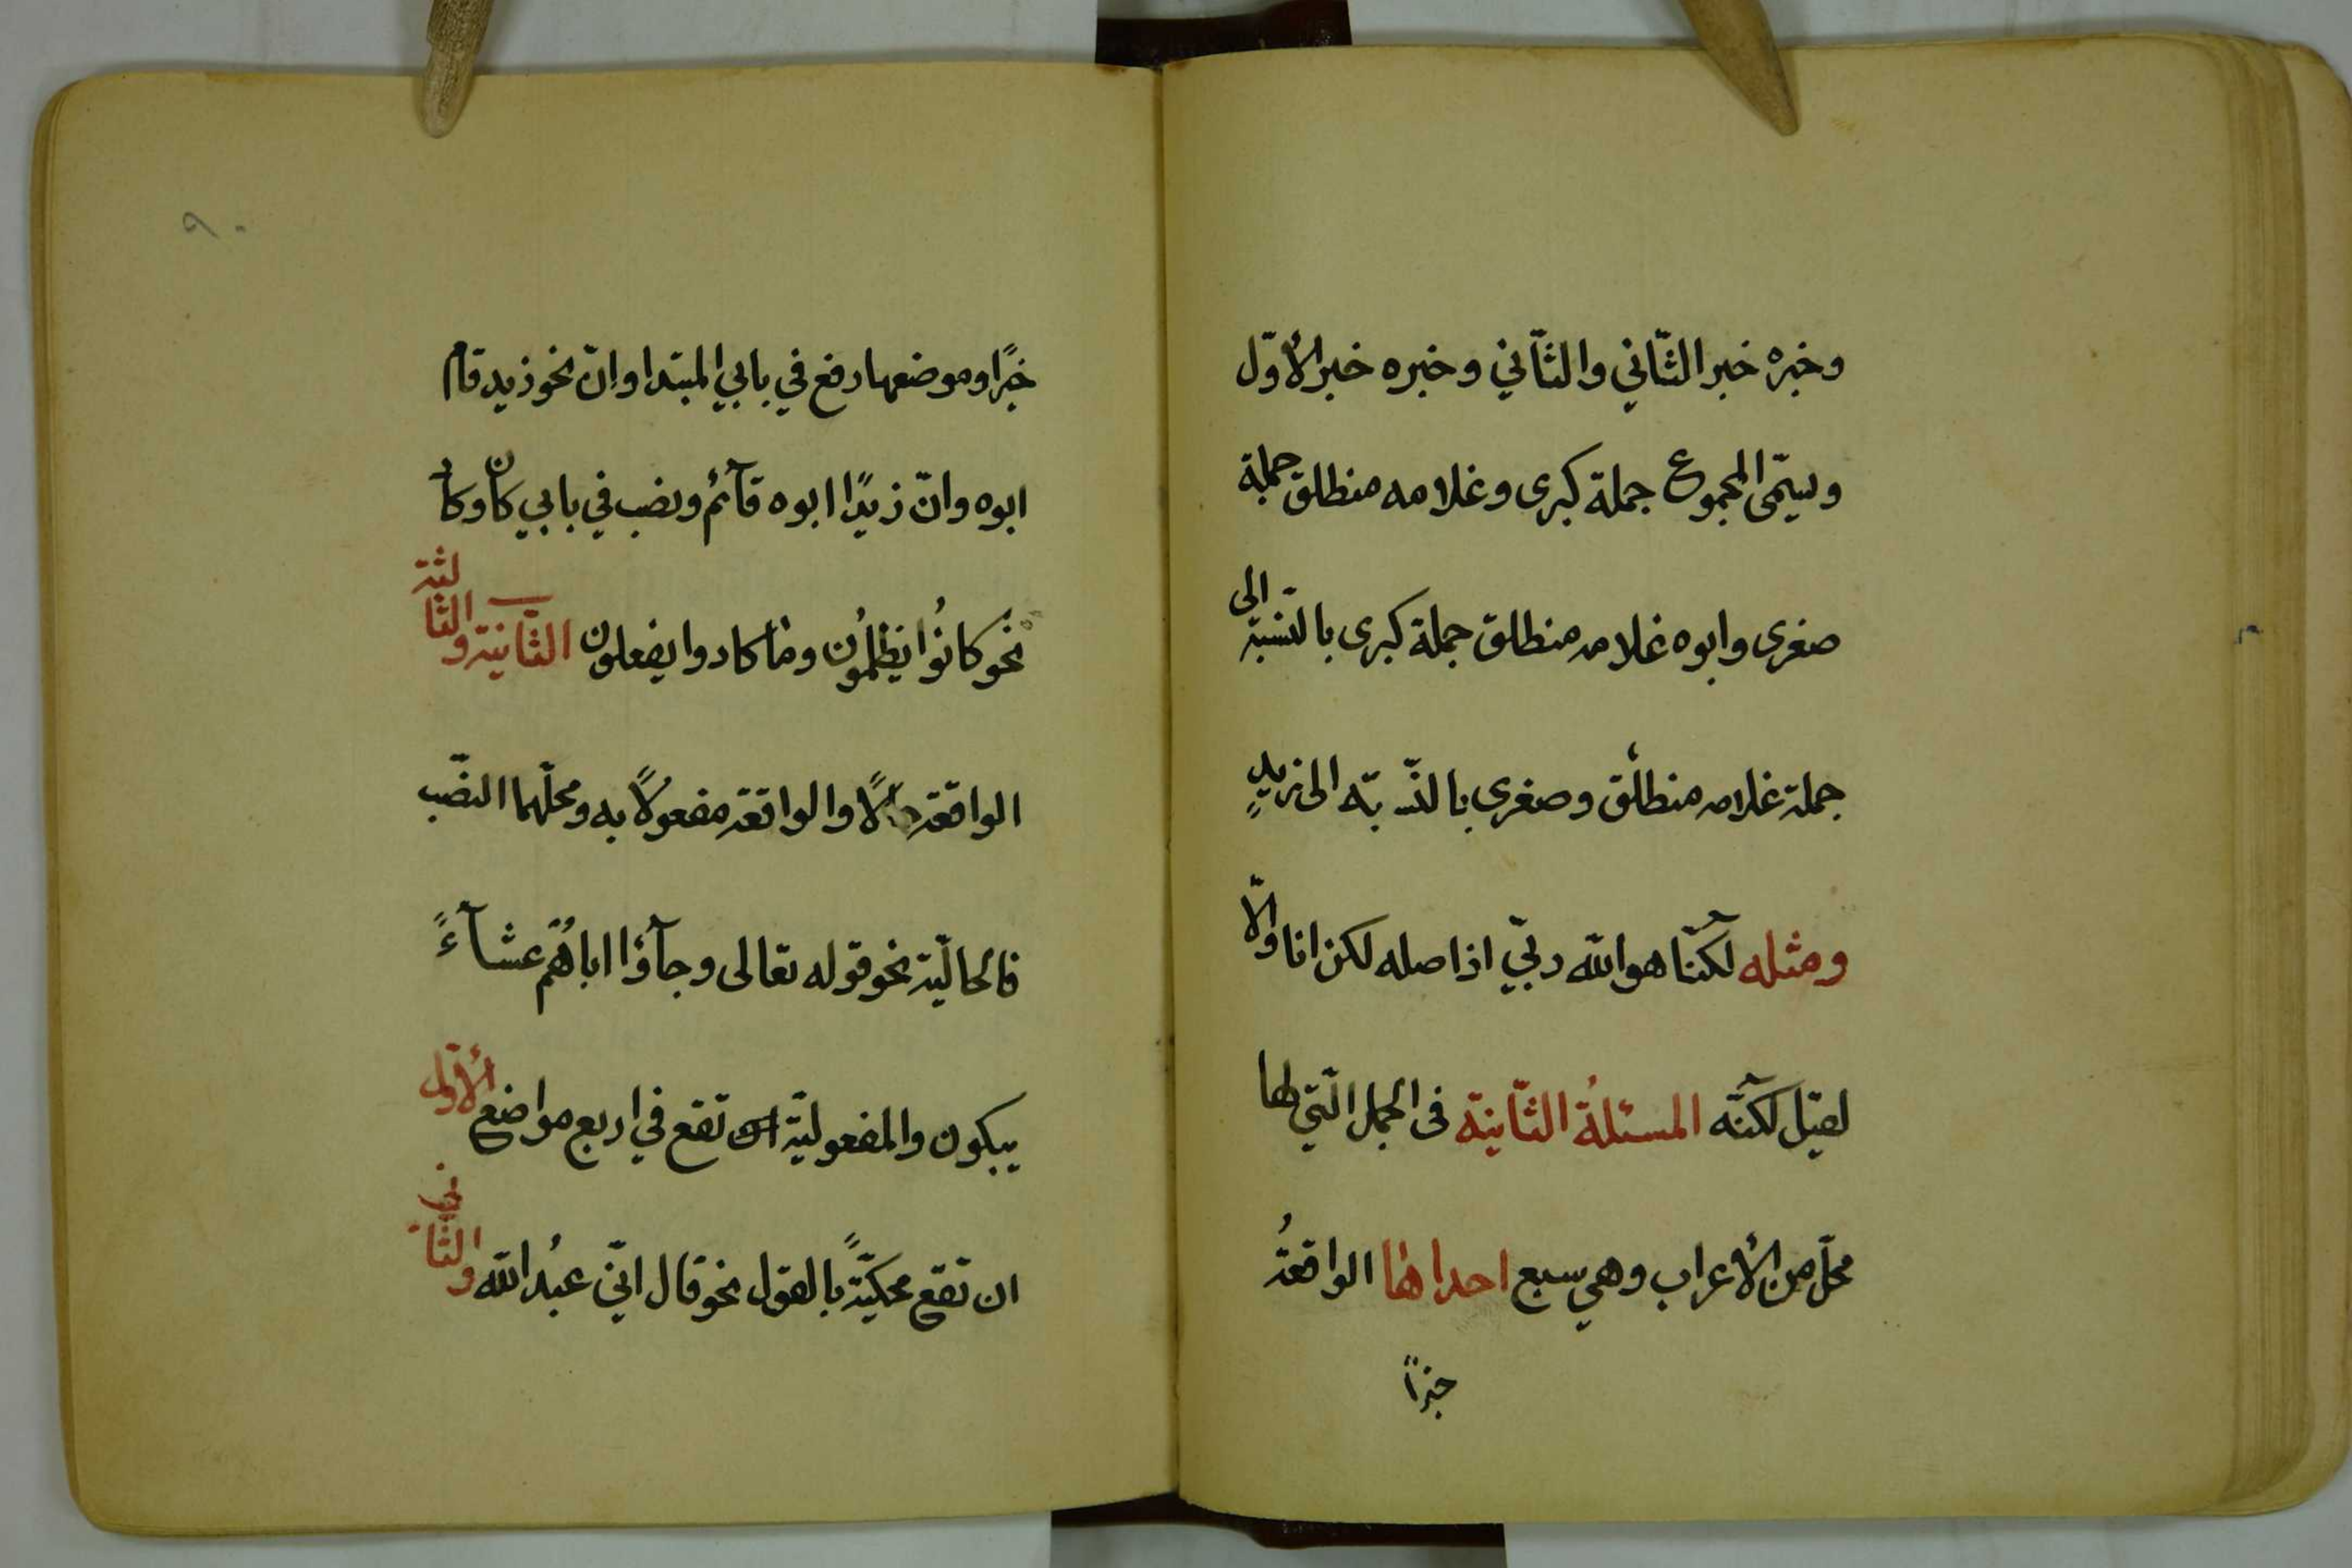 وخبره خبر الثّاني والثّاني وخبره خبر الأوّل
ويسمّى المجموع جملة كبرى وغلامه منطلق جملة
صغرى وابوه غلامه منطلق جملة كبرى بالنّسبة الى
جملة غلامه منطلق وصغرى بالنّسبة الى زيدٍ
ومثله لكنّا هو اللّه ربّي اذ اصله لكن انا والّا
لقيل لكنّه المسئلةُ الثّانية فى الجمل الّتي لها
محلّ من الأعراب وهي سبع احداها الواقعةُ
خبرًا
٩٠
خبرًا وموضعها رفع في بابي المبتدا وانّ نحو زيد قام
ابوه وانّ زيدًا ابوه قآئم ونصب في بابي كان وكاد
نحو كانُوا يظلمُون وما كادوا يفعلون الثّانية والثّالثة
الواقعة حالًا والواقعة مفعولًا به ومحلّهما النصّب
فالحاليّة نحو قوله تعالى وجآؤا اباهُم عشآءً
يبكون والمفعوليّة تقع في اربع مواضع الأوّل
ان تقع محكيّةً بالقول نحو قال انّي عبدُ اللّه والثّاني